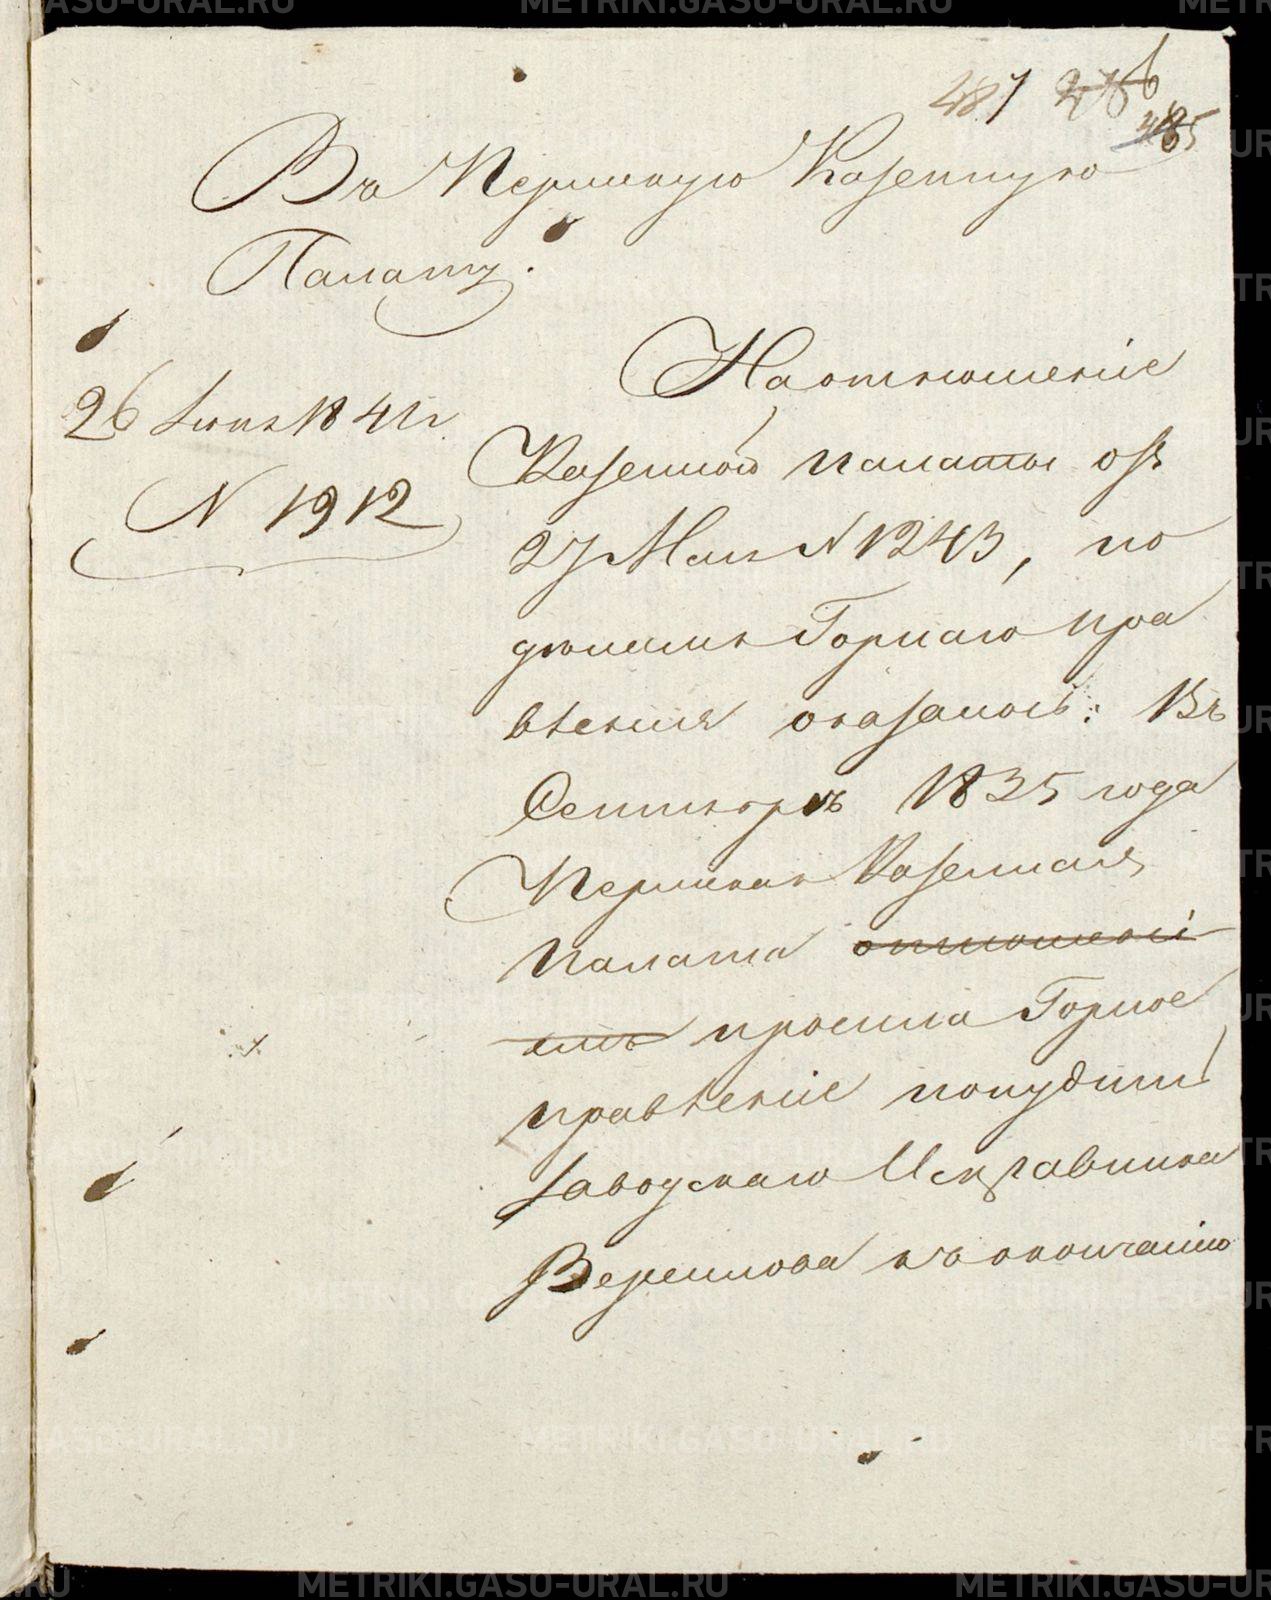 487 276
485
Въ Пермскую Казенную
Палату.
26 Іюня 1841 г
N 1912
На отношеніе
Казенной палаты отъ
27 Мая N 1243, по
дѣламъ Горнаго пра
вленія оказалось: Въ
Сентябрѣ 1835 года
Пермская Казенная
палата отношені
емъ просила Горное
правленіе понудить
Заводскаго Исправника
къ окончанію
METRIKI.GASO-URAL.RU